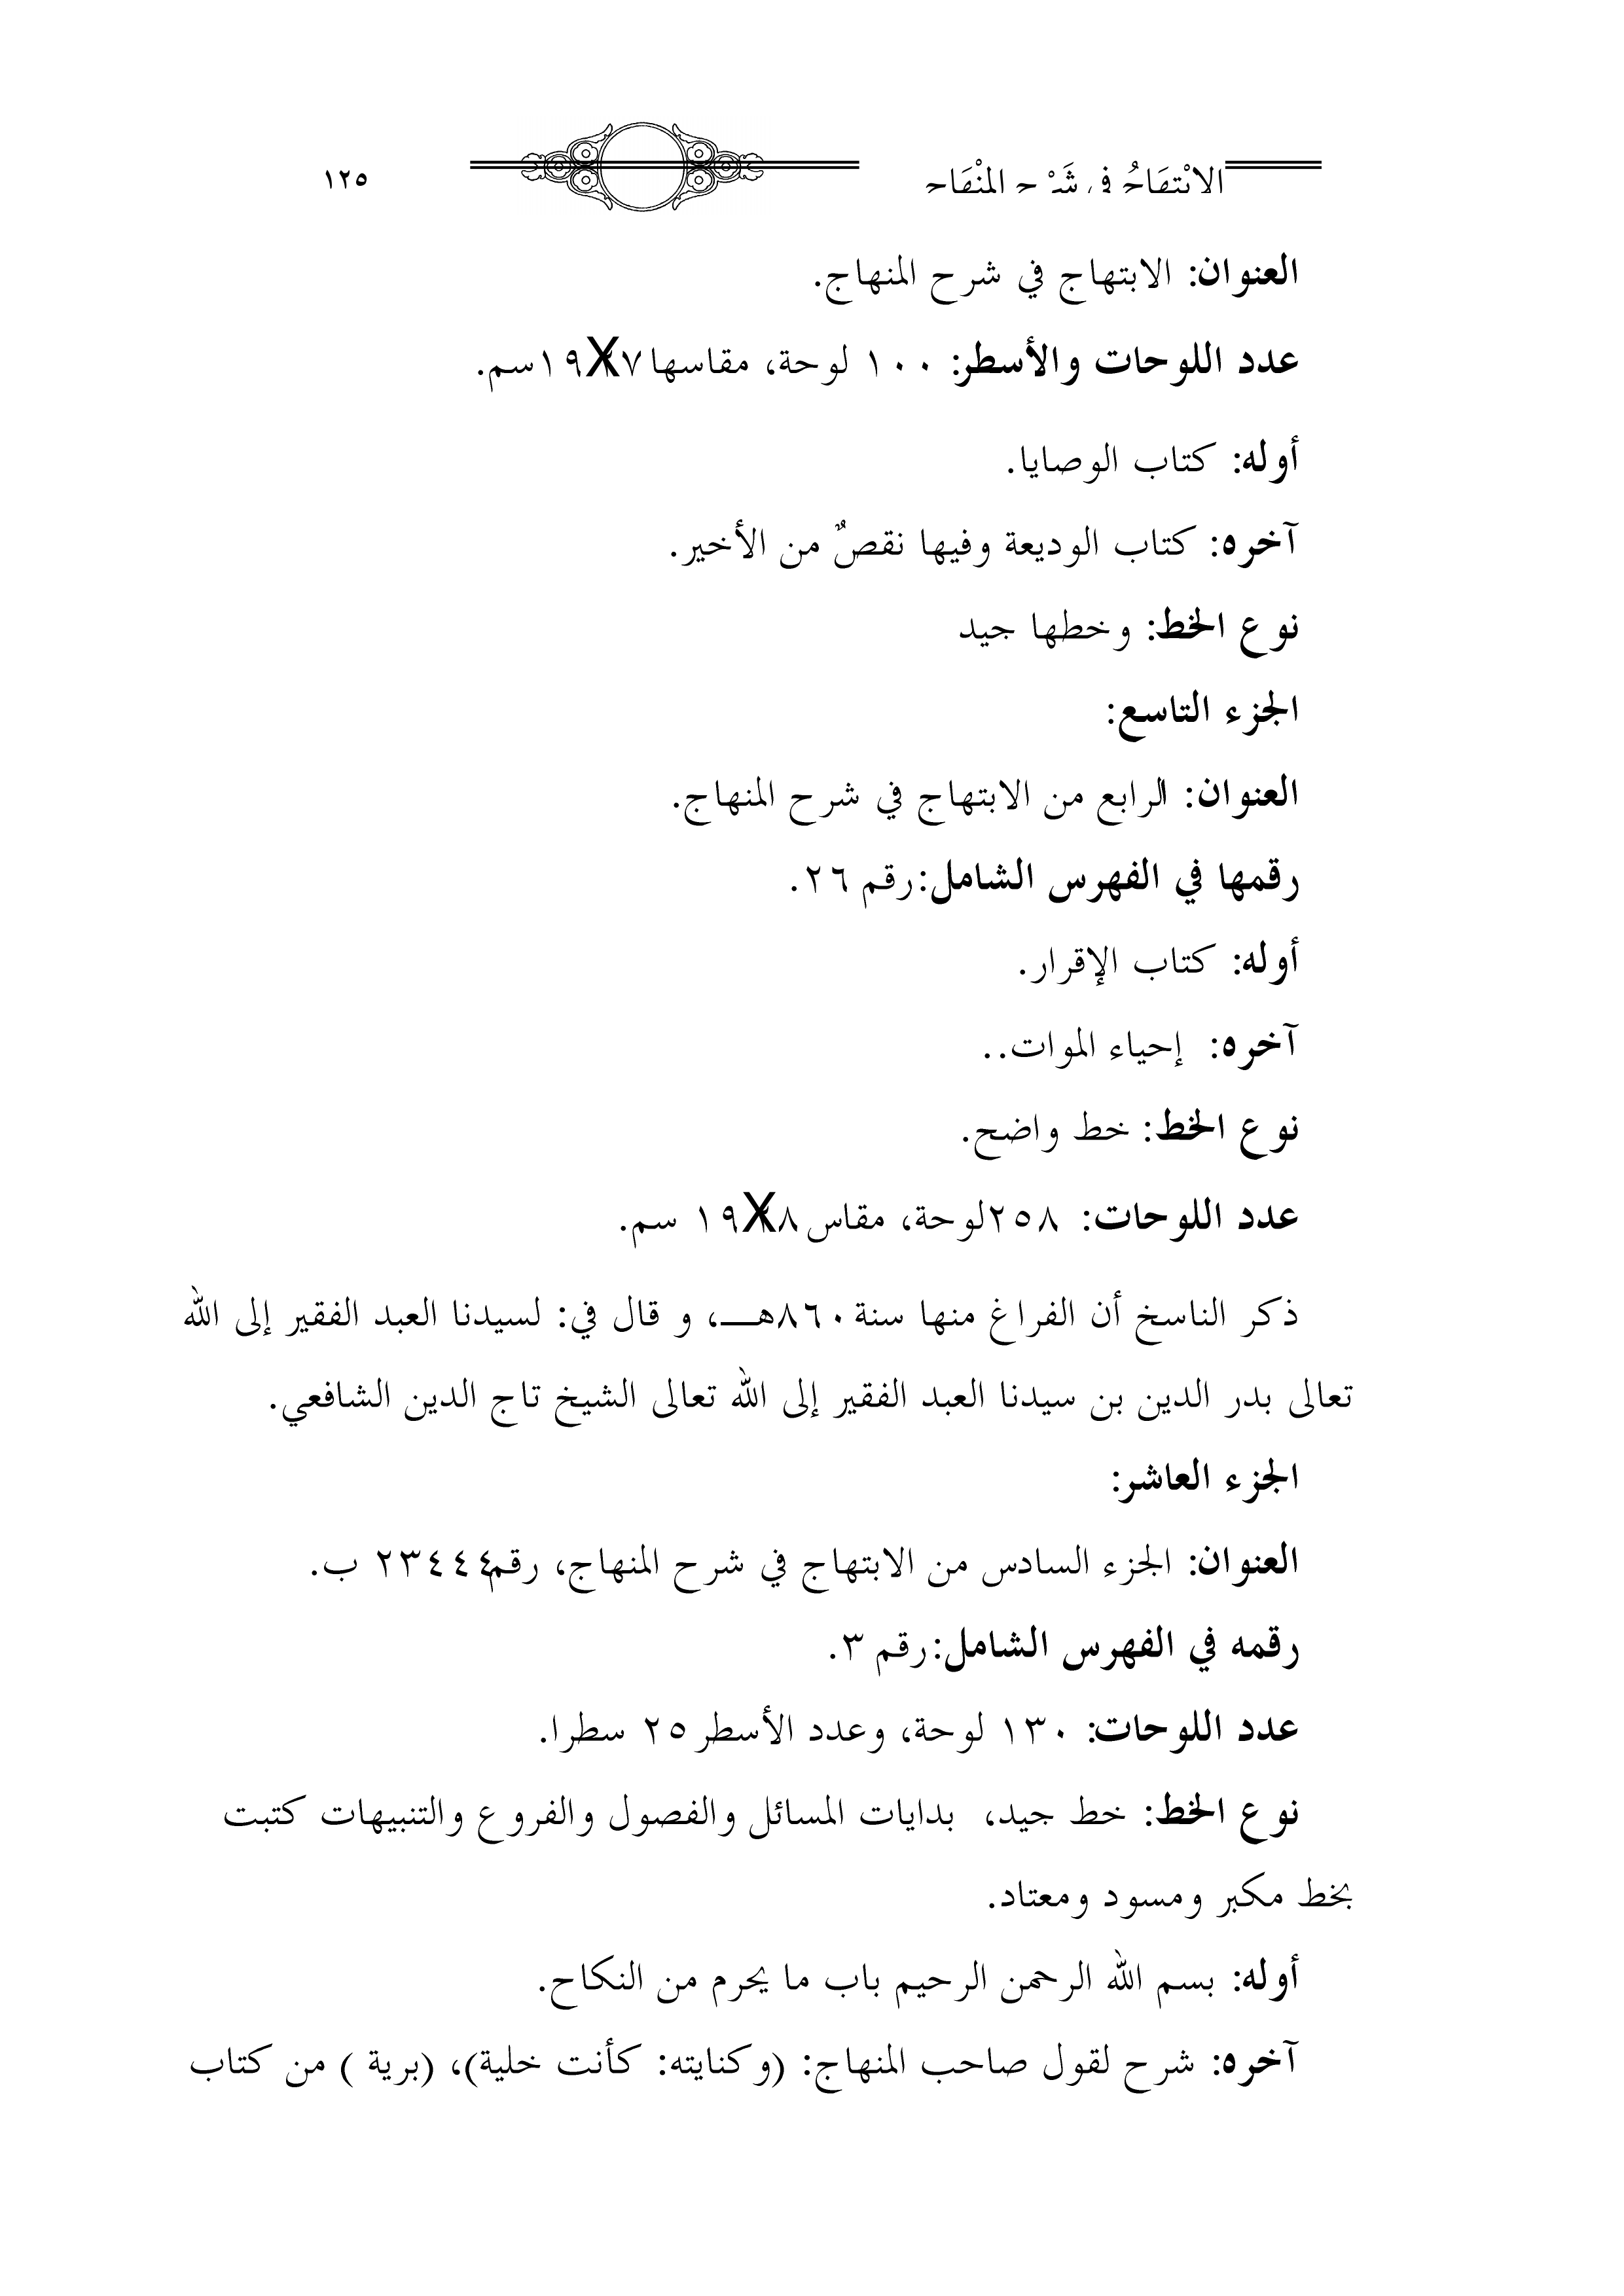 الابْتِهَاجُ فِي شَرْحِ المِنْهَاجِ ١٢٥
العنوان: الابتهاج في شرح المنهاج.
عدد اللوحات والأسطر: ١٠٠ لوحة، مقاسها ٧X١٩سم.
أوله: كتاب الوصايا.
آخره: كتاب الوديعة وفيها نقصٌ من الأخير.
نوع الخط: وخطها جيد
الجزء التاسع:
العنوان: الرابع من الابتهاج في شرح المنهاج.
رقمها في الفهرس الشامل:رقم ٢٦.
أوله: كتاب الإقرار.
آخره: إحياء الموات..
نوع الخط: خط واضح.
عدد اللوحات: ٢٥٨لوحة، مقاس ٨X١٩ سم.
ذكر الناسخ أن الفراغ منها سنة ٨٦٠هـ، و قال في: لسيدنا العبد الفقير إلى الله
تعالى بدر الدين بن سيدنا العبد الفقير إلى الله تعالى الشيخ تاج الدين الشافعي.
الجزء العاشر:
العنوان: الجزء السادس من الابتهاج في شرح المنهاج، رقم٢٣٤٤٤ ب.
رقمه في الفهرس الشامل:رقم ٣.
عدد اللوحات: ١٣٠ لوحة، وعدد الأسطر ٢٥ سطرا.
نوع الخط: خط جيد، بدايات المسائل والفصول والفروع والتنبيهات كتبت
بخط مكبر ومسود ومعتاد.
أوله: بسم الله الرحمن الرحيم باب ما يحرم من النكاح.
آخره: شرح لقول صاحب المنهاج: (وكنايته: كأنت خلية)، (برية ) من كتاب